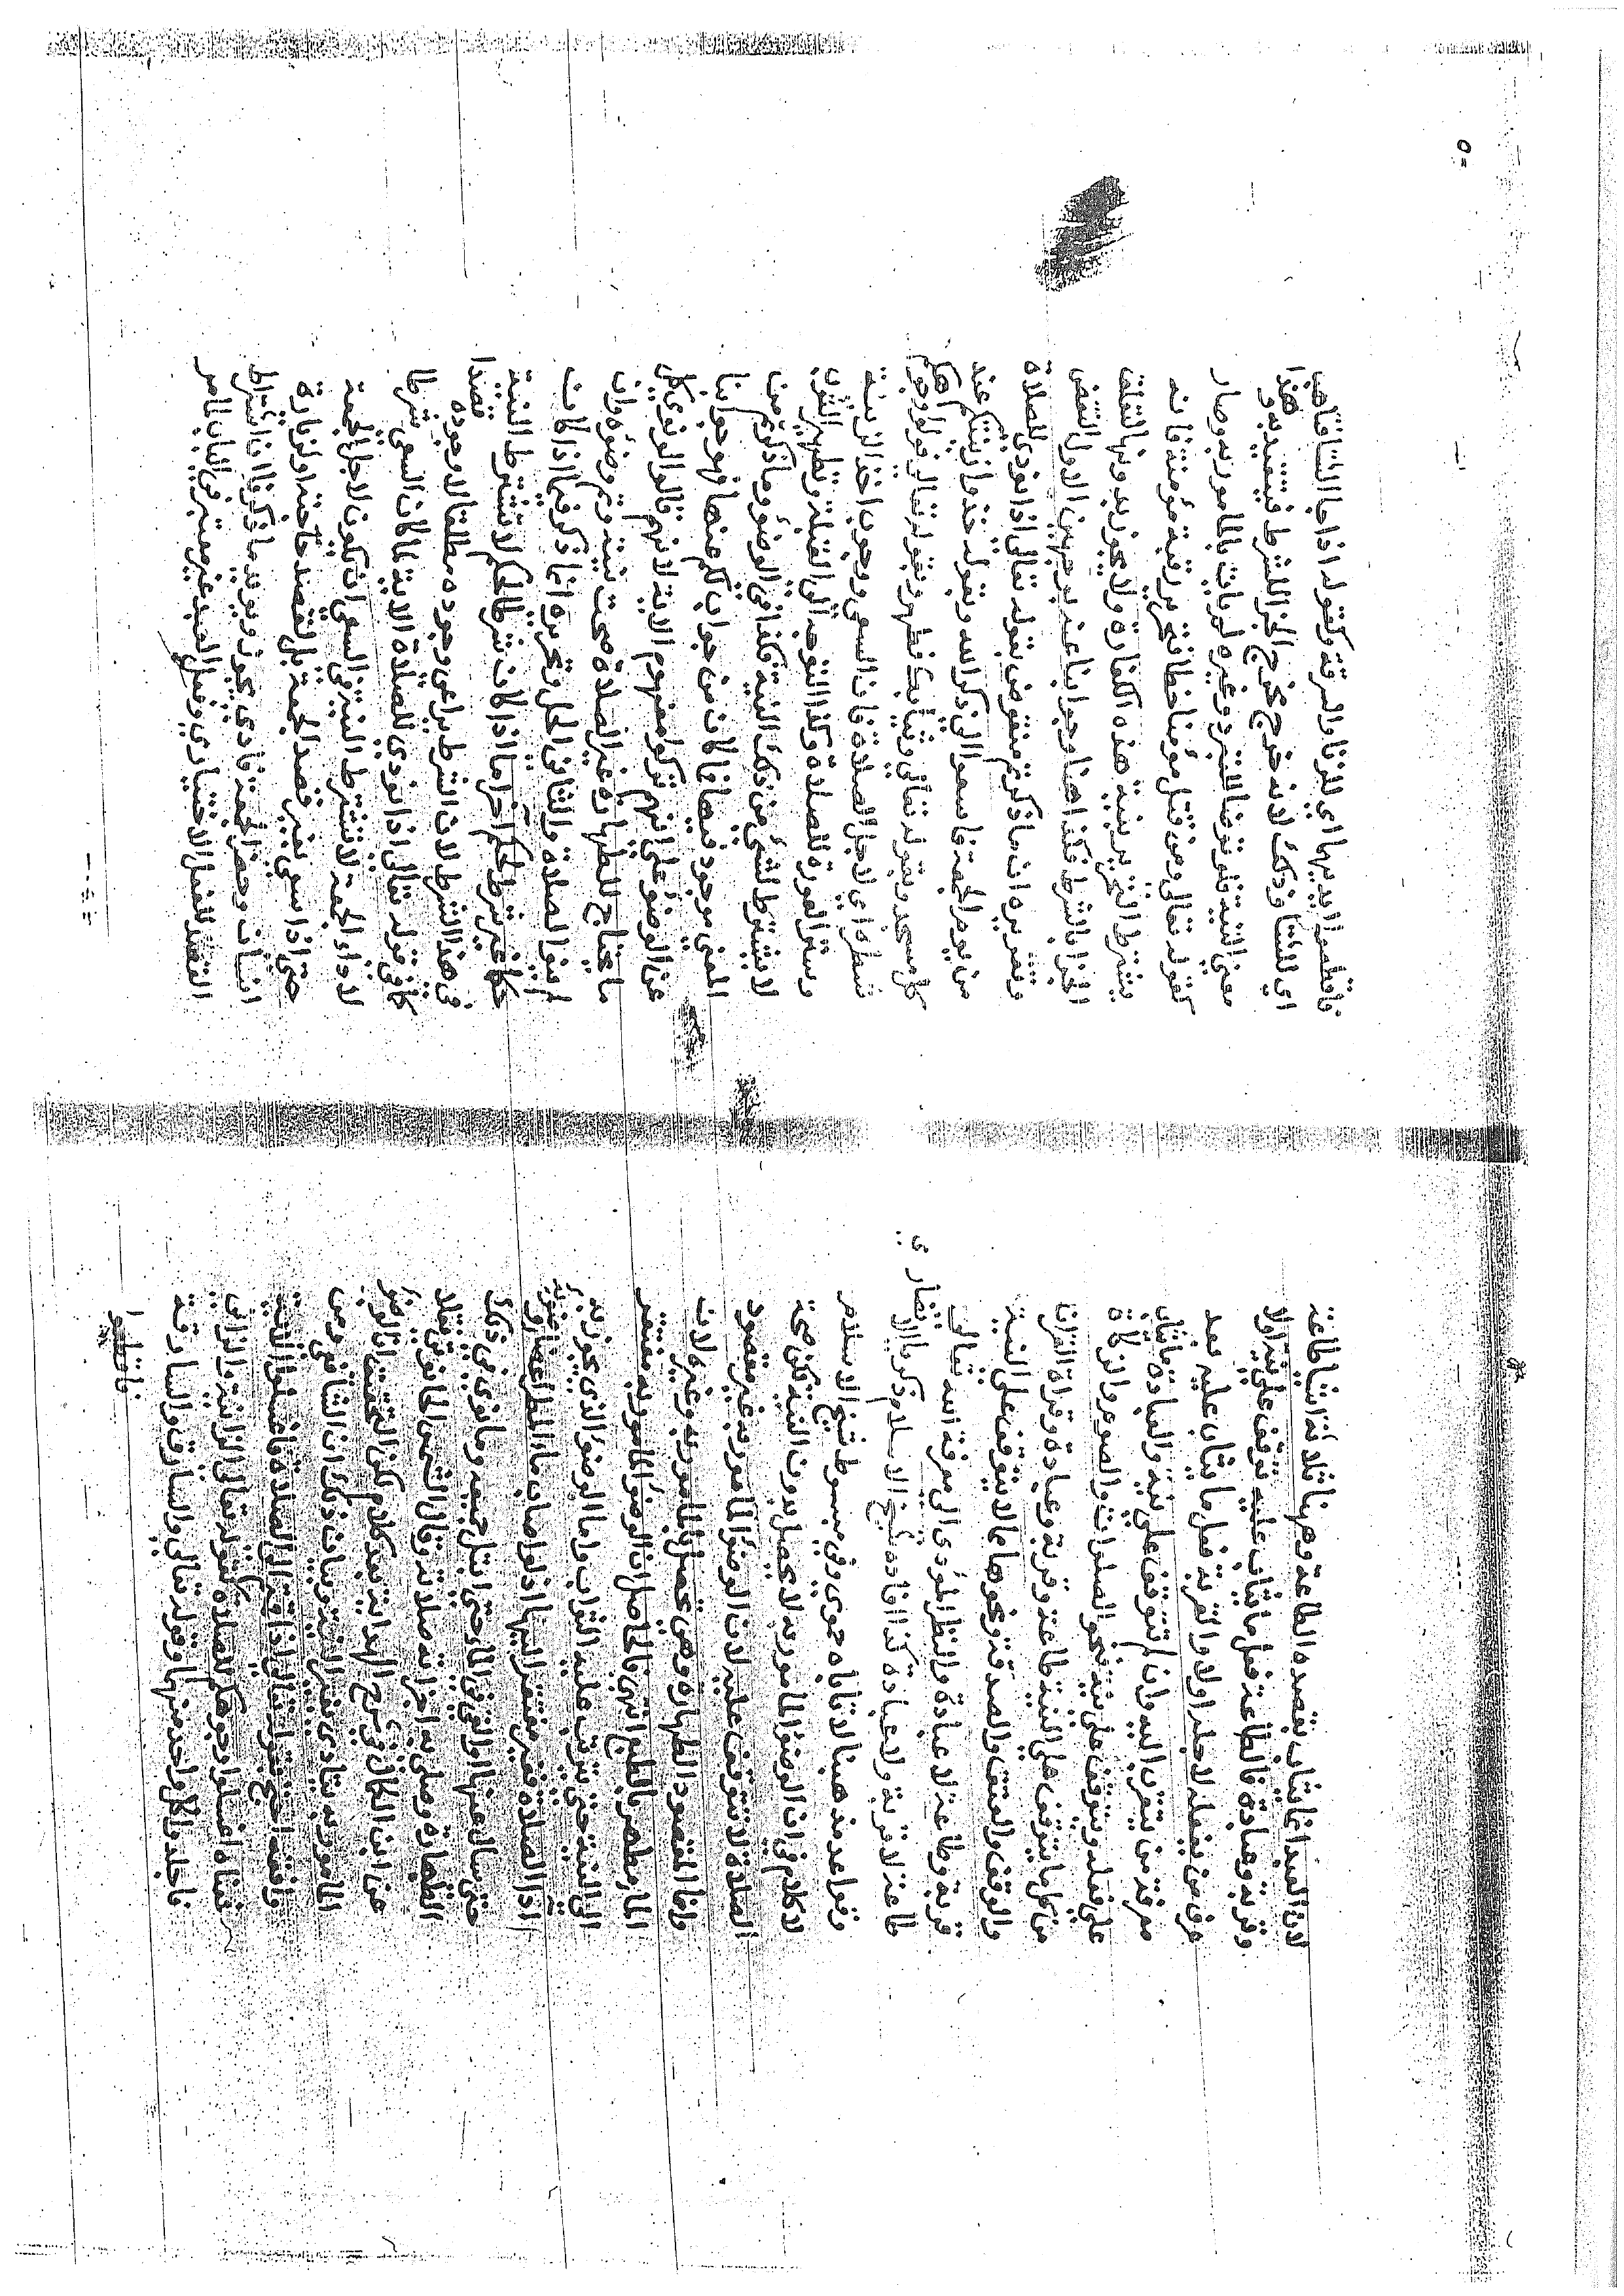 لان العبد انما يثاب بقصده الطاعة وههنا ثلاثة اشيا طاعة
وقربة وعبادة فالطاعة فعل ما يثاب عليه توقف على نية اولا
عرف من يفعله لاجله اولا والقربة فعل ما يثاب عليه بعد
معرفة من يتقرب اليه وان لم تتوقف على نية والعبادة ما يثاب
على فعله ويتوقف على نية فنحو الصلوات والصوم والزكاة
من كل ما يتوقف على النية طاعة وقربة وعبادة وقراة القران
والوقف والعتق والصدقة ونحوها مما لا يتوقف على النية
قربة وطاعة لا عبادة والنظر المؤدي الى معرفة الله تعالى
طاعة لا قربة ولا عبادة كذا افاده شيخ الاسلام زكريا الانصاري
وقواعد مذهبنا لا تاباه حموى وفي مبسوط شيخ الاسلام
لا كلام في ان الوضوء المامور به لا يحصل بدون النية لكن صحة
الصلاة لا تتوقف عليه لان الوضوء المامور به غير مقصود
وانما المقصود الطهارة وهي تحصل بالمامور به وغيره لان
الما مطهر بالطبع انتهى فالحاصل ان الوضوء المامور به مفتقر
الى النية حتى يترتب عليه الثواب واما الوضوء الذي يجوز به
ادا الصلاة فغير مفتقر اليها اذ لو اصابه ماء المطر اعضاؤه
حتى سال عنها او القي في الماء حتى ابتل جميعه وما نوى في ذلك
الطهارة وصلى به اجزاته صلاته وقال الشمس الحانوتي نقلا
عن ابن الكمال في شرح الهداية بعد كلام لكن التحقيق ان الوضوء
المامور به يتادى بغير النية وبيان ذلك ان الشافعي ومن
وافقه احتج بقوله تعالى اذا قمتم الى الصلاة فاغسلوا الاية
معناه اغسلوا وجوهكم للصلاة كقوله تعالى الزانية والزاني
فاجلدوا كل واحد منهما وقوله تعالى والسارق والسارقة
فاقطعوا
فاقطعوا ايديهما اي للزنا والسرقة وكقوله اذا جا الشتا فتاهب
اي للشتا وذلك لانه خرج مخرج الجزا للشرط فيتقيد به وهذا
معنى النية فلو توضا للتبرد وغيره لم يات بالمامور به وصار
كقوله تعالى ومن قتل مؤمنا خطا فتحرير رقبة مؤمنة فانه
يشترط التحرير بنية هذه الكفارة ولا يجوز بدونها لتعلق
الجزا بالشرط فكذا هنا وجوابنا عنه بوجهين الاول النقض
وتقريره ان ما ذكرتم منقوض بقوله تعالى اذا نودي للصلاة
من يوم الجمعة فاسعوا الى ذكر الله وبقوله خذوا زينتكم عند
كل مسجد وبقوله تعالى وثيابك فطهر وبقوله تعالى فولوا وجوهكم
شطره اي لاجل الصلاة فان السعي ووجوب اخذ الزينة
وستر العورة للصلاة وكذا التوجه الى القبلة وتطهير الثوب
لا يشترط لشئ من ذلك النية فكذا في الوضوء وما ذكرتم من
المعنى موجود فيها فما كان من جوابكم عنها فهو جوابنا
عن الوضوء على انهم تركوا مفهوم الاية لانهم قالوا لو نوى كل
ما يحتاج للطهارة غير الصلاة صحت نيته وتم وضوءه وان
لم ينو الصلاة والثاني الحل وتحريره انما ذكر فيما اذا كان
حكما غير شرط لحكم آخر اما اذا كان شرطا لحكم لا تشترط النية
في هذا الشرط لان الشرط يراعى وجوده مطلقا لا وجوده قصدا
كما في قوله تعالى اذا نودي للصلاة الاية لما كان السعي شرطا
لاداء الجمعة لا تشترط النية في السعي ان يكون لاجل الجمعة
حتى اذا سعى بغير قصد الجمعة بل لقصد حاجة او لزيارة
انسان وحضر الجمعة فادى يجوز ويؤيد ما ذكرنا ان اشتراط
القصد للفعل الاختياري وفعل العبد غير معتبر في اتيان المامور